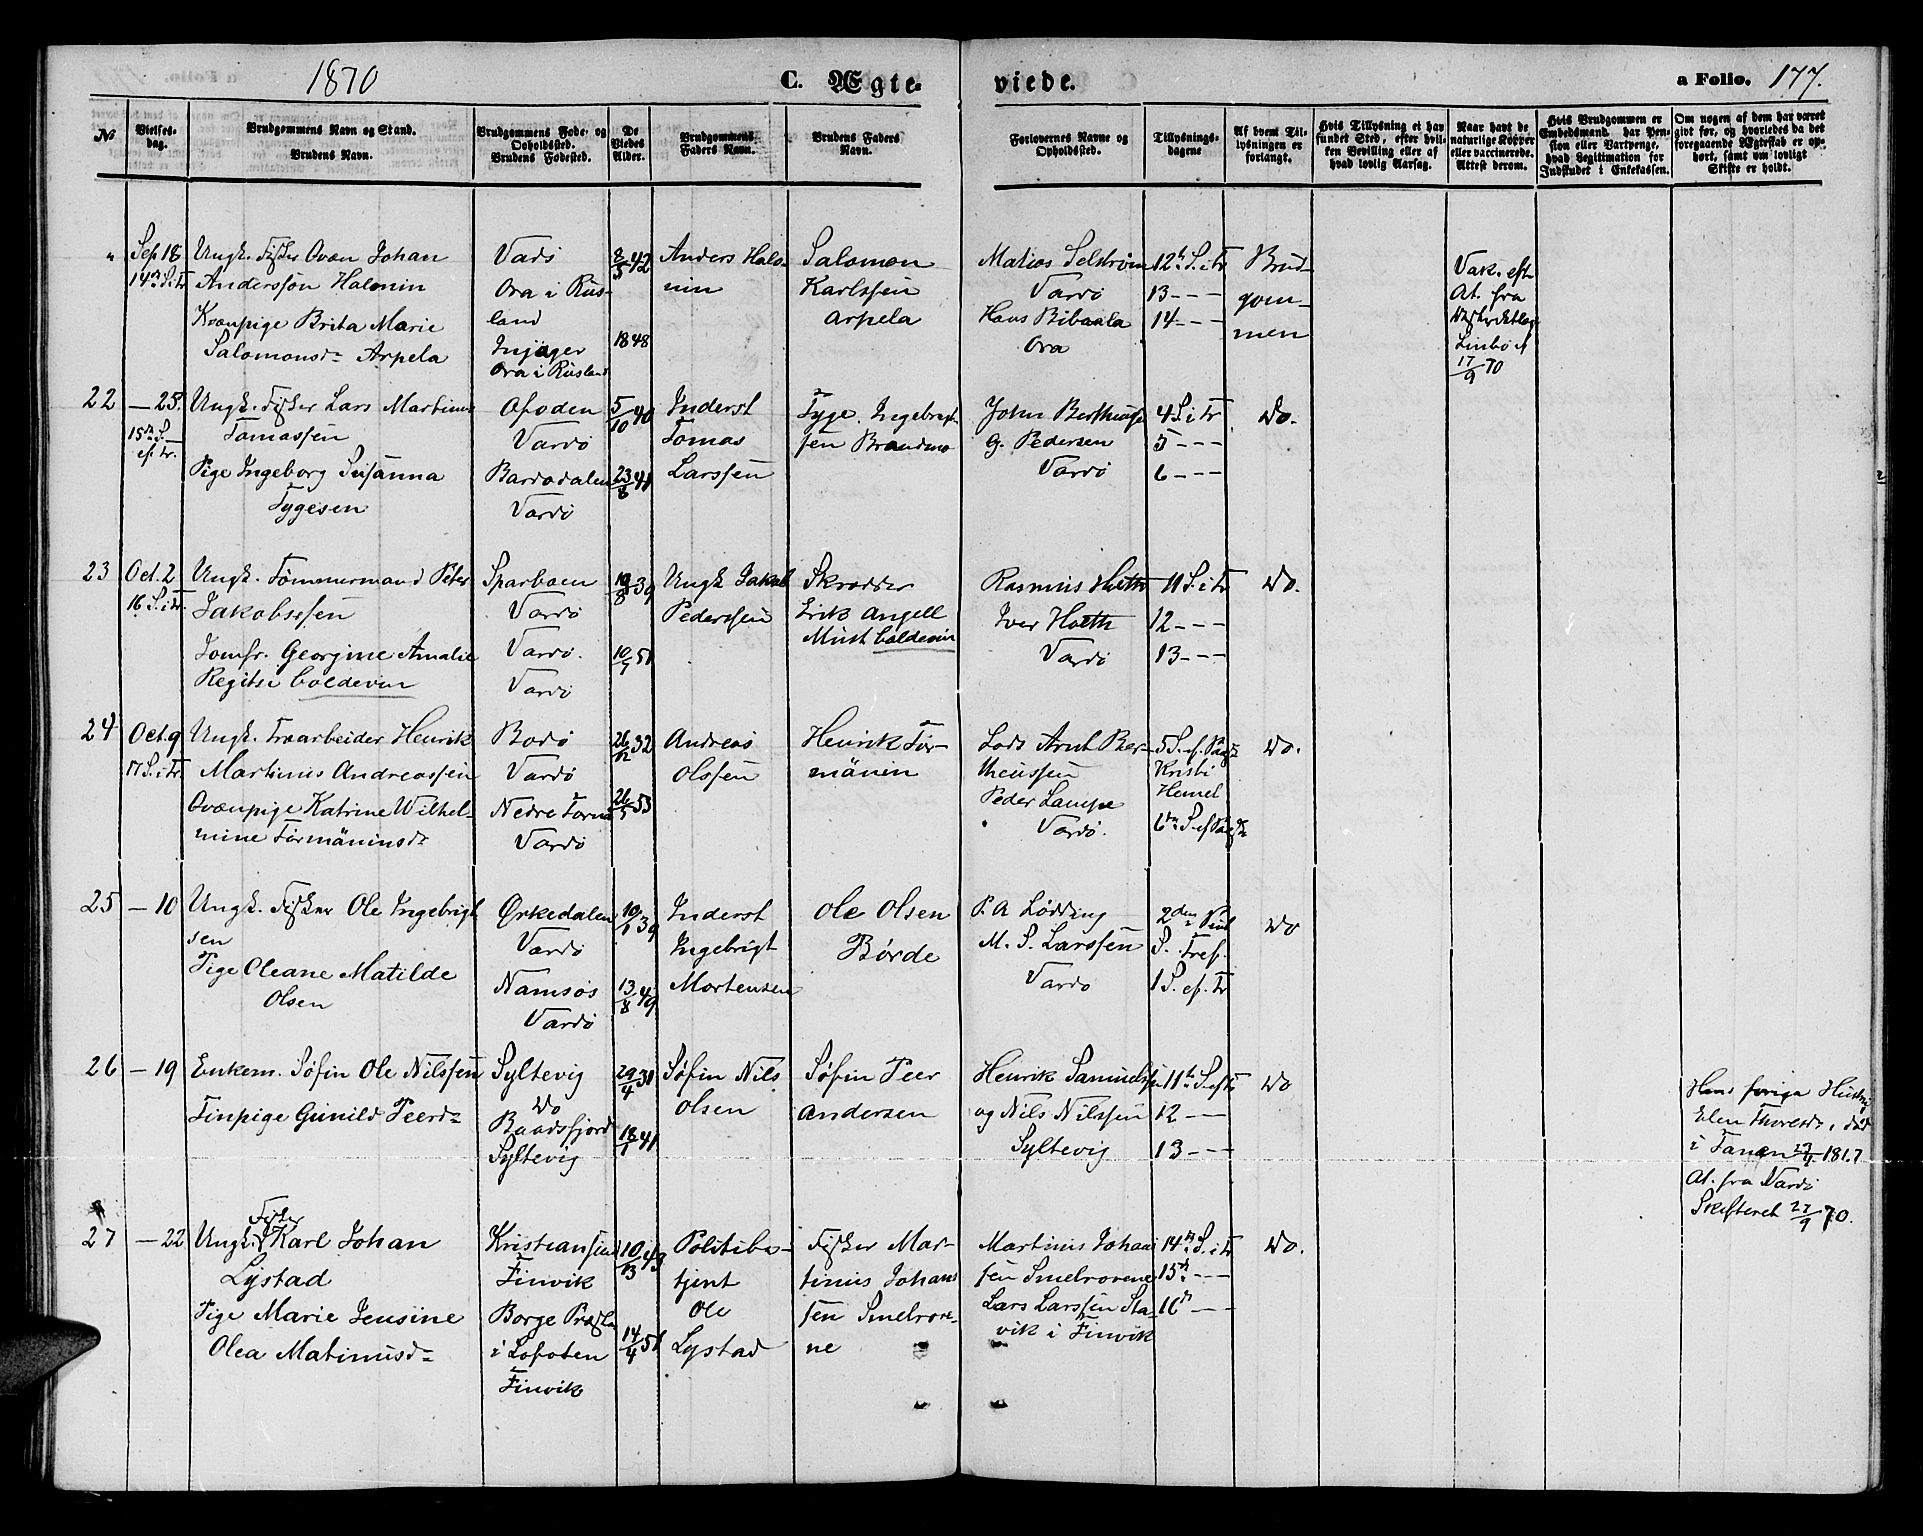 1870
C. Ægte-
viede.
a Folio. 177.
No
Vielses-
dag.
Brudgommens Navn og Stand.
Brudens Navn.
Brudgommens Føde- og
Opholdssted.
Brudens Fødested.
De
Viedes
Alder.
Brudgommens
Faders Navn.
Brudens Faders
Navn.
Forlovernes Navne og
Opholdssted.
Tillysnings-
dagene
Af hvem Til-
lysningen er
forlangt.
Hvis Tillysning ei har
fundet Sted, efter hvil-
ken Bevilling eller af
hvad lovlig Aarsag.
Naar havt de
naturlige Kopper
eller vaccinerede.
Attest derom.
Hvis Brudgommen er
Embedsmand, har Pen-
sion eller Vartpenge,
hvad Legitimation for
Indskudet i Enkekassen.
Om nogen af dem har været
gift før, og hvorledes da det
foregaaende Ægteskab er op-
hørt, samt om lovligt
Skifte er holdt.
" Sep 18
14de S. i Tr
Ungk. Fisker Johan
Anderssøn Halonin
Kvænpige Brita Marie
Salomonsd= Arpela
Vadsö
Ora i Rus-
land
Ora i Rusland
8/3 42
1848
Anders Halo-
nin
Salomon
Karlssen
Arpela
Matias Selström
Vardö
Hans Bibaala
Ora
12te S. i Tr
13 - - -
14 - - -
Brud-
gom-
men
Vak. eft
At. fra
17/9 70
22 — 25.
15de S.
ef. Tr.
Ungk. Fisker Lars Martinus
Tomassen
Pige Ingeborg Susanna
Tygesen
Ofoden
Vardö
Bardodalen
Vardö
5/10 40
23/8 41
Inderst
Tomas
Larssen
Tyge Ingebrigt-
sen Brandmo
John
G. Pedersen
Vardö
4 S. i Tr
5 - - -
6 - - -
Do.
23 Oct. 2
16 S. i Tr.
Ungk. Tömmermand Peter
Jakobssen
Jomfr. Georgine Amalie
Regitse Coldevin
Sparboen
Vardö
Vardö.
Vardö
19/8 39
10/7 51
Ungk Jakob
Pederssen
Skrædder
Erik Angell
Must Coldevin
Rasmus Hoeth
Iver Hoeth
Vardö
11 S. i Tr
12 - - -
13 - - -
Do.
24 Oct. 9
17 S. i Tr.
Ungk. Træarbeider Henrik
Martinus Andreassen
Qvænpige Katrine Wilhel-
mine Törmäninsd=
Bodö
Vardö
Nedre Torneå
Vardö
26/12 32
26/5 53
Andreas
Olssen
Henrik Tör-
mänin
Lods Arnt Ber-
theussen
Peder Lampe
Vardö.
5 S. ef. Paask
Kristi
Hemel
6te S. ef Paask
Do.
25 — 10
Ungk. Fisker Ole Ingebrigt
sen
Pige Oleane Matilde
Olsen
Ørkedalen
Vardö
Namsos
Vardö
39
13/8 49
Inderst
Ingebrigt
Mortensen
Ole Olsen
Børde
P. A Lødding
M. S. Larssen
Vardö
2den Pint
S. Tref.
1 S. ef. Tr
Do
26 — 19
Enkem. Söfin Ole Nilssen
Finpige Gunild Peersd=
Syltevig
Do
Baadsfjord
Syltevig
29/4 31
18/1 41
Söfin Nils
Olsen
Söfin Peer
Andersen
Henrik Samuelsen
og Nils Nilssen
Syltevig
11te S. eft Tr
12 - -
13 - - -
Do
Hans forige Hustru
Elen Thoresd=, död
i Tanen
At. fra Vardö
Skifteret 27/9 70.
27 — 22
Ungk. Fisker Karl Johan
Lystad
Pige Marie Jensine
Olea Matinusd=
Kristiansund
Finvik
Borge
i Lofoten
Finvik
43
14/4 51
Politibe-
tjent
Ole
Lystad
Fisker Mar-
tinus Johans
sen Smelrore-
ne
Martinus Johans
sen Smelrorene
Lars Larssen Sta-
vik i Finvik
14de S. i Tr
15de - - -
16de - -
Do.